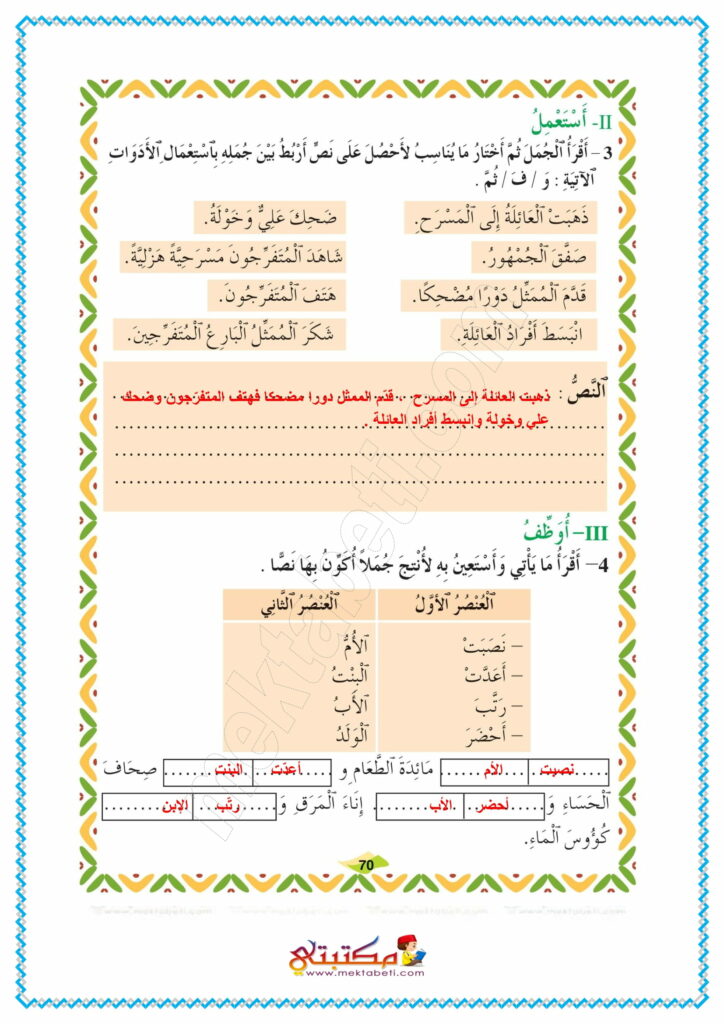 II- أَسْتَعْمِلُ
3 – أَقْرَأُ ٱلْجُمَلَ ثُمَّ أَخْتَارُ مَا يُنَاسِبُ لأَحْصُلَ عَلَى نَصٍّ أَرْبُطُ بَيْنَ جُمَلِهِ بِٱسْتِعْمَالِ ٱلْأَدَوَاتِ
ٱلآتِيَةِ : وَ / فَ / ثُمَّ .
ذَهَبَتْ ٱلْعَائِلَةُ إِلَى ٱلْمَسْرَحِ. ضَحِكَ عَلِيٌّ وَخَوْلَةُ.
صَفَّقَ ٱلْجُمْهُورُ. شَاهَدَ ٱلْمُتَفَرِّجُونَ مَسْرَحِيَّةً هَزْلِيَّةً.
قَدَّمَ ٱلْمُمَثِّلُ دَوْرًا مُضْحِكًا. هَتَفَ ٱلْمُتَفَرِّجُونَ.
انْبَسَطَ أَفْرَادُ ٱلْعَائِلَةِ. شَكَرَ ٱلْمُمَثِّلُ ٱلْبَارِعُ ٱلْمُتَفَرِّجِينَ.
ٱلنَّصُّ : ذهبت العائلة إلى المسرح . . قدّم الممثل دورا مضحكا فهتف المتفرّجون وضحك
علي وخولة وانبسط أفراد العائلة .
III- أُوَظِّفُ
4- أَقْرَأُ مَا يَأْتِي وَأَسْتَعِينُ بِهِ لأُنْتِجَ جُمَلاً أُكَوِّنُ بِهَا نَصًّا .
ٱلْعُنْصُرُ ٱلأَوَّلُ ٱلْعُنْصُرُ ٱلثَّانِي
– نَصَبَتْ ٱلأُمُّ
– أَعَدَّتْ ٱلْبِنْتُ
– رَتَّبَ ٱلأَبُ
– أَحْضَرَ ٱلْوَلَدُ
.....نصبت... ...الأم...... مَائِدَةَ ٱلطَّعَامِ و ......أعدّت.. ..البنت....... صِحَافَ
ٱلْحَسَاءِ وَ.....أحضر.. ..الأب....... إِنَاءَ ٱلْمَرَقِ وَ.....رتّب... ..الإبن.........
كُؤُوسَ ٱلْمَاءِ.
70
www.mektabeti.com
مكتبتي
www.mektabeti.com
mektabeti.com